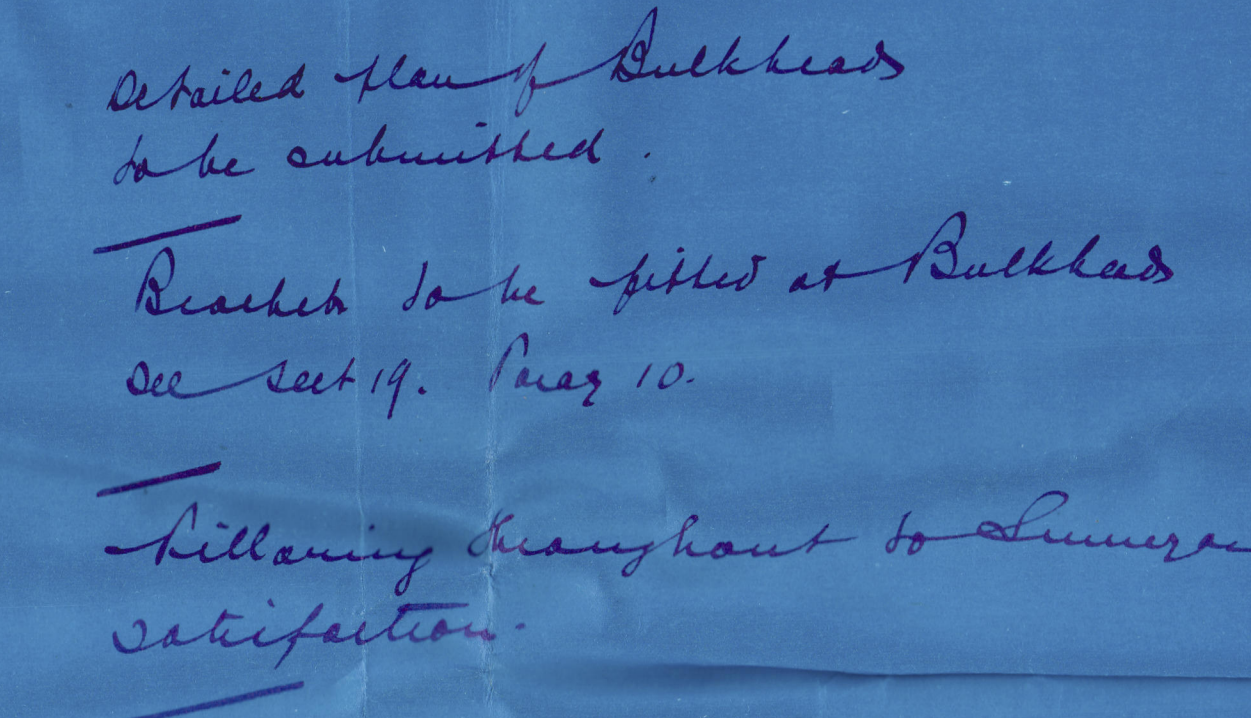 Detailed plan of Bulkheads
to be submitted.
Brackets to be fitted at Bulkheads
see sect 19. Parag 10.
Pillaring throughout to
satisfaction.